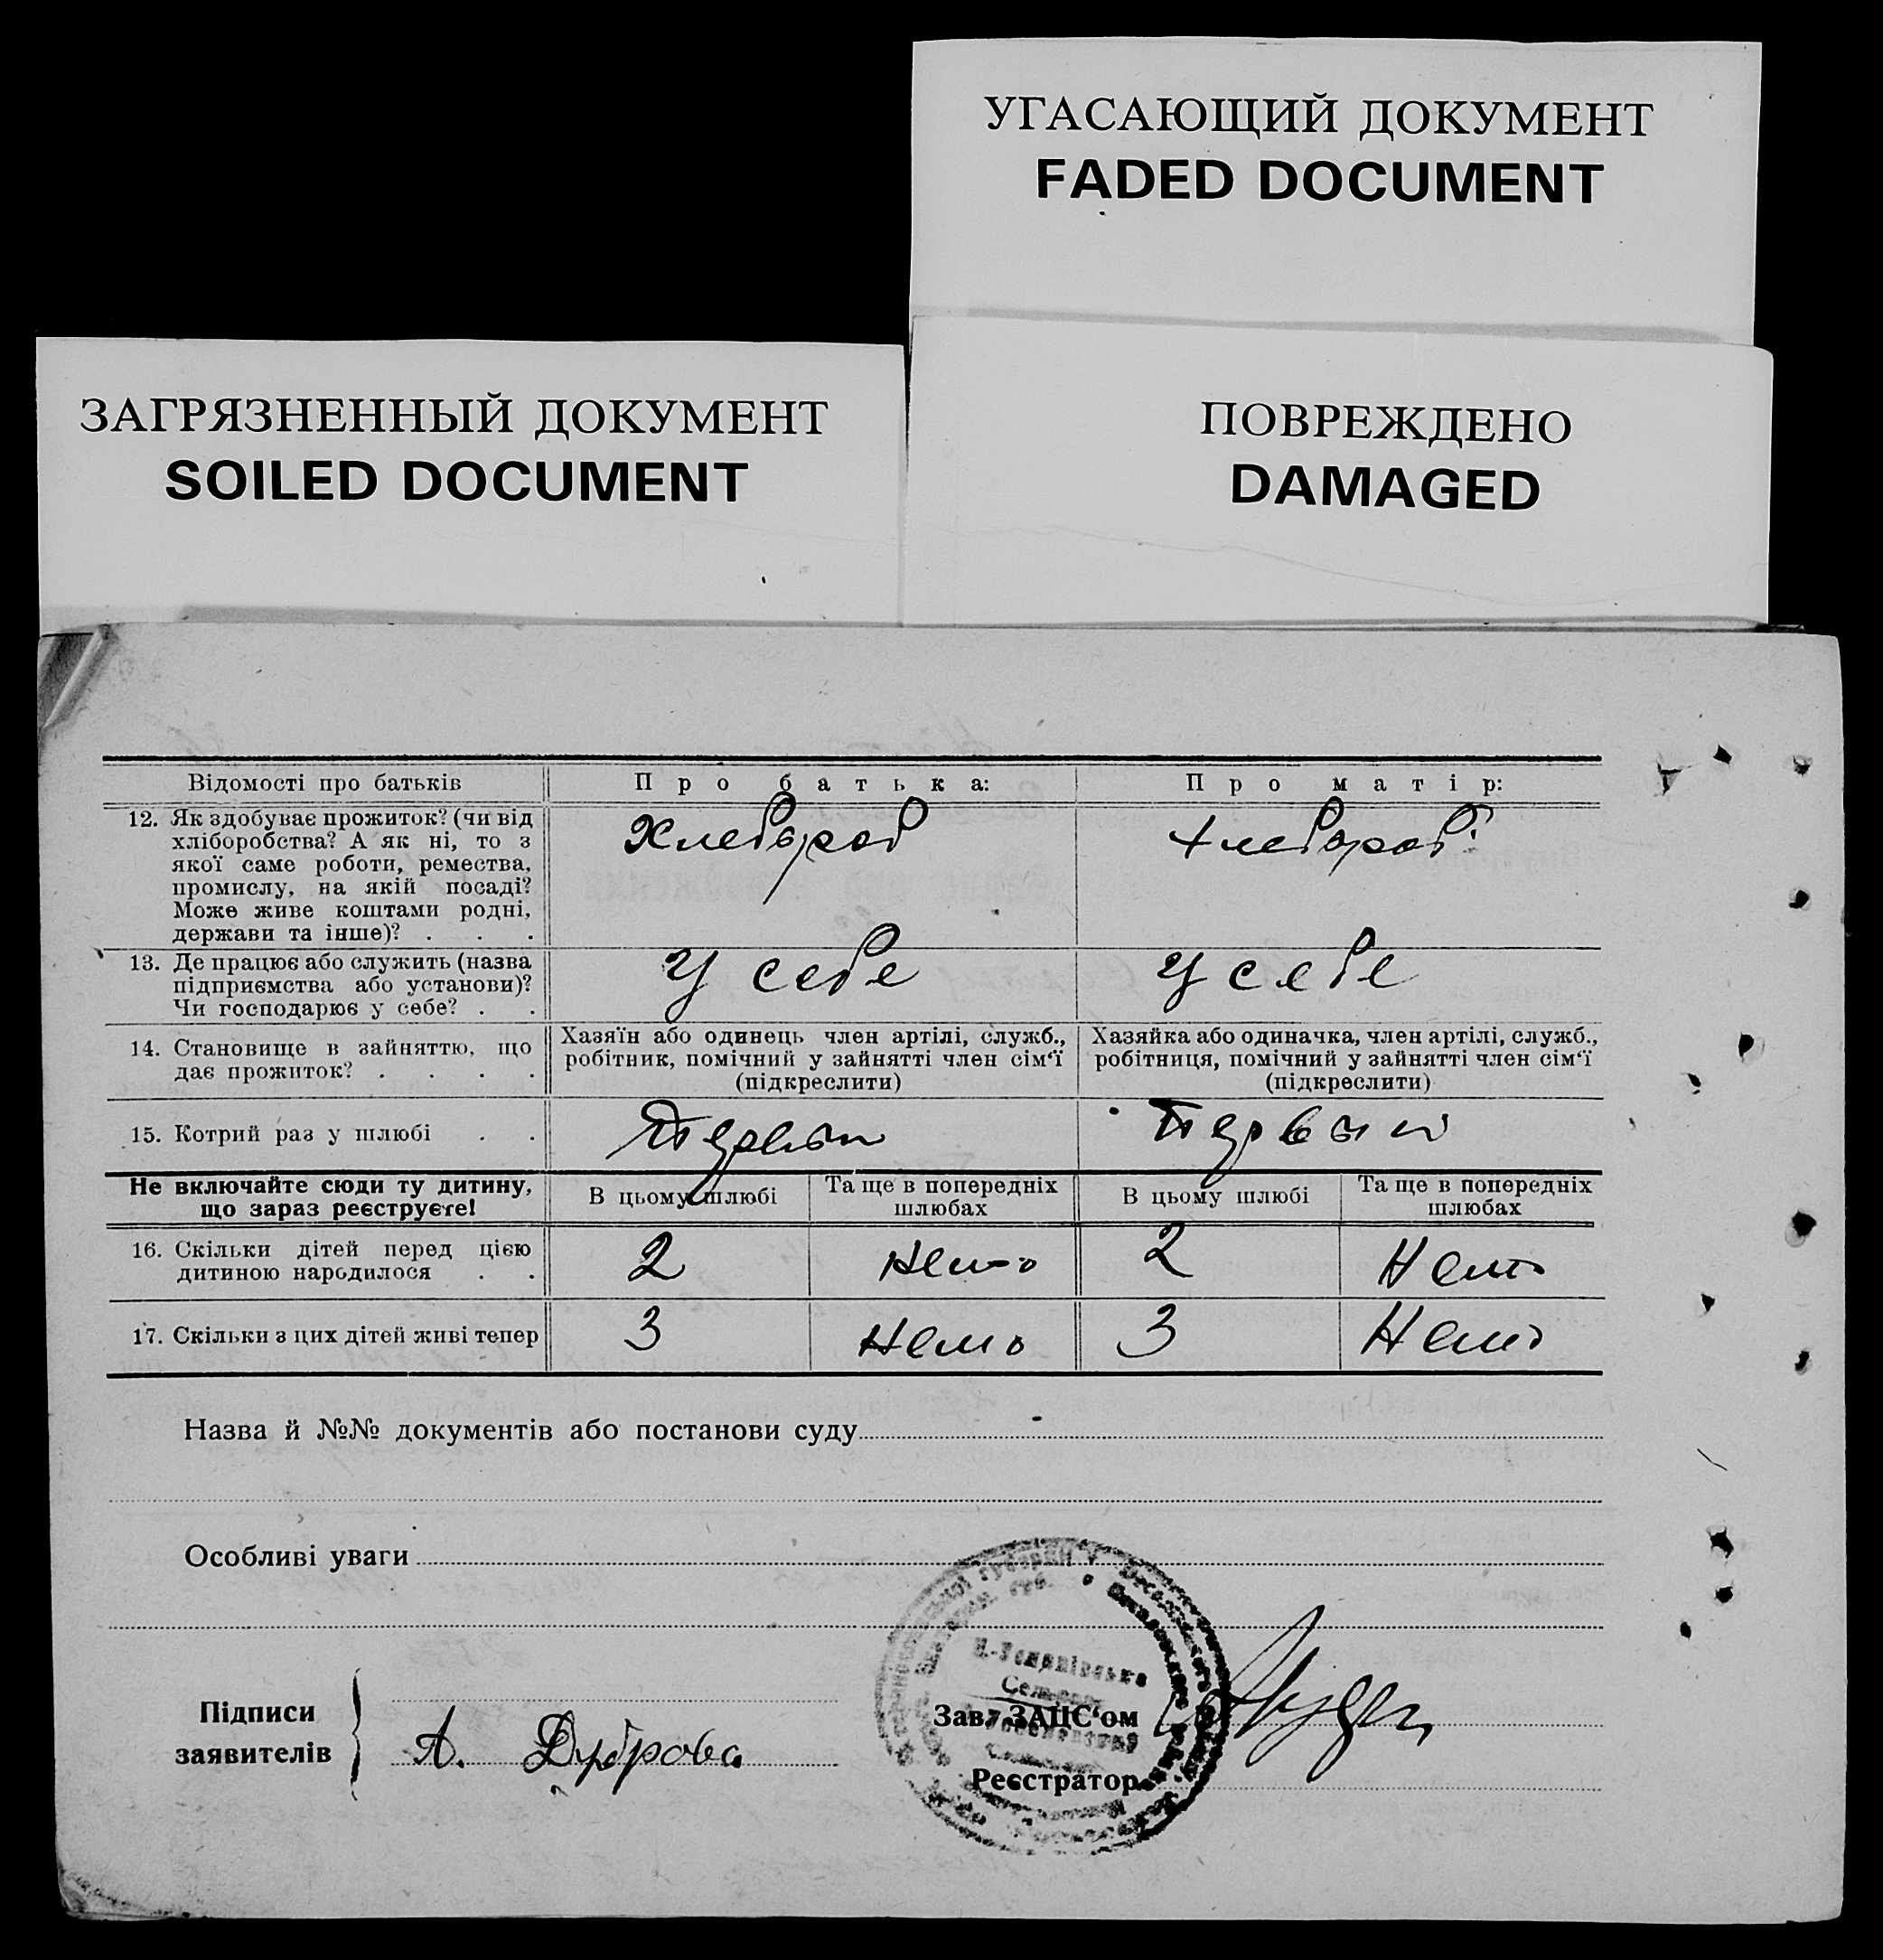 УГАСАЮЩИЙ ДОКУМЕНТ
FADED DOCUMENT
ЗАГРЯЗНЕННЫЙ ДОКУМЕНТ
SOILED DOCUMENT
ПОВРЕЖДЕНО
DAMAGED
Відомості про батьків Про батька: Про матір:
12. Як здобуває прожиток? (чи від
хліборобства? А як ні, то з
якої саме роботи, ремества,
промислу, на якій посаді?
Може живе коштами родні,
держави та інше)? . . .
Хлебороб Хлебороб
13. Де працює або служить (назва
підприємства або установи)?
Чи господарює у себе? . .
У себе У себе
14. Становище в зайняттю, що
дає прожиток? . . . .
Хазяїн або одинець член артілі, служб.,
робітник, помічний у зайнятті член сім‘ї
(підкреслити)
Хазяйка або одиначка, член артілі, служб.,
робітниця, помічний у зайнятті член сім‘ї
(підкреслити)
15. Котрий раз у шлюбі . . Первый Первый
Не включайте сюди ту дитину,
що зараз реєструєте!
В цьому шлюбі
Та ще в попередніх
шлюбах
В цьому шлюбі
Та ще в попередніх
шлюбах
16. Скільки дітей перед цією
дитиною народилося . .
2 Нето 2 Нето
17. Скільки з цих дітей живі тепер 3 Нето 3 Нето
Назва й №№ документів або постанови суду
Особливі уваги
Підписи
заявителів
А. Дуброва
Зав. ЗАЦС‘ом
Реєстратор